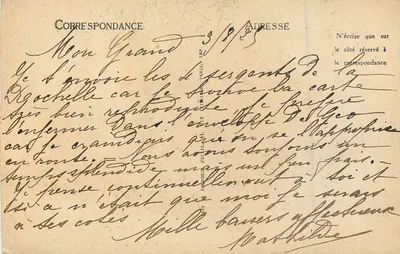 CORRESPONDANCE
ADRESSE
N'écrire que sur
le côté réservé à
la correspondance
Mon Grand
Je t'envoie les 4 sergents de la
Rochelle car je trouve la carte
très bien reproduite je préfère
l'enfermer dans l'enveloppe de Geo
car je craindrais qu'on se l'approprie
en route. Nous avons toujours un
temps splendide mais un peu
Je pense continuellement à toi et
si ça n'était que moi je serais
à tes cotés.
Mille baisers affectueux
Mathilde